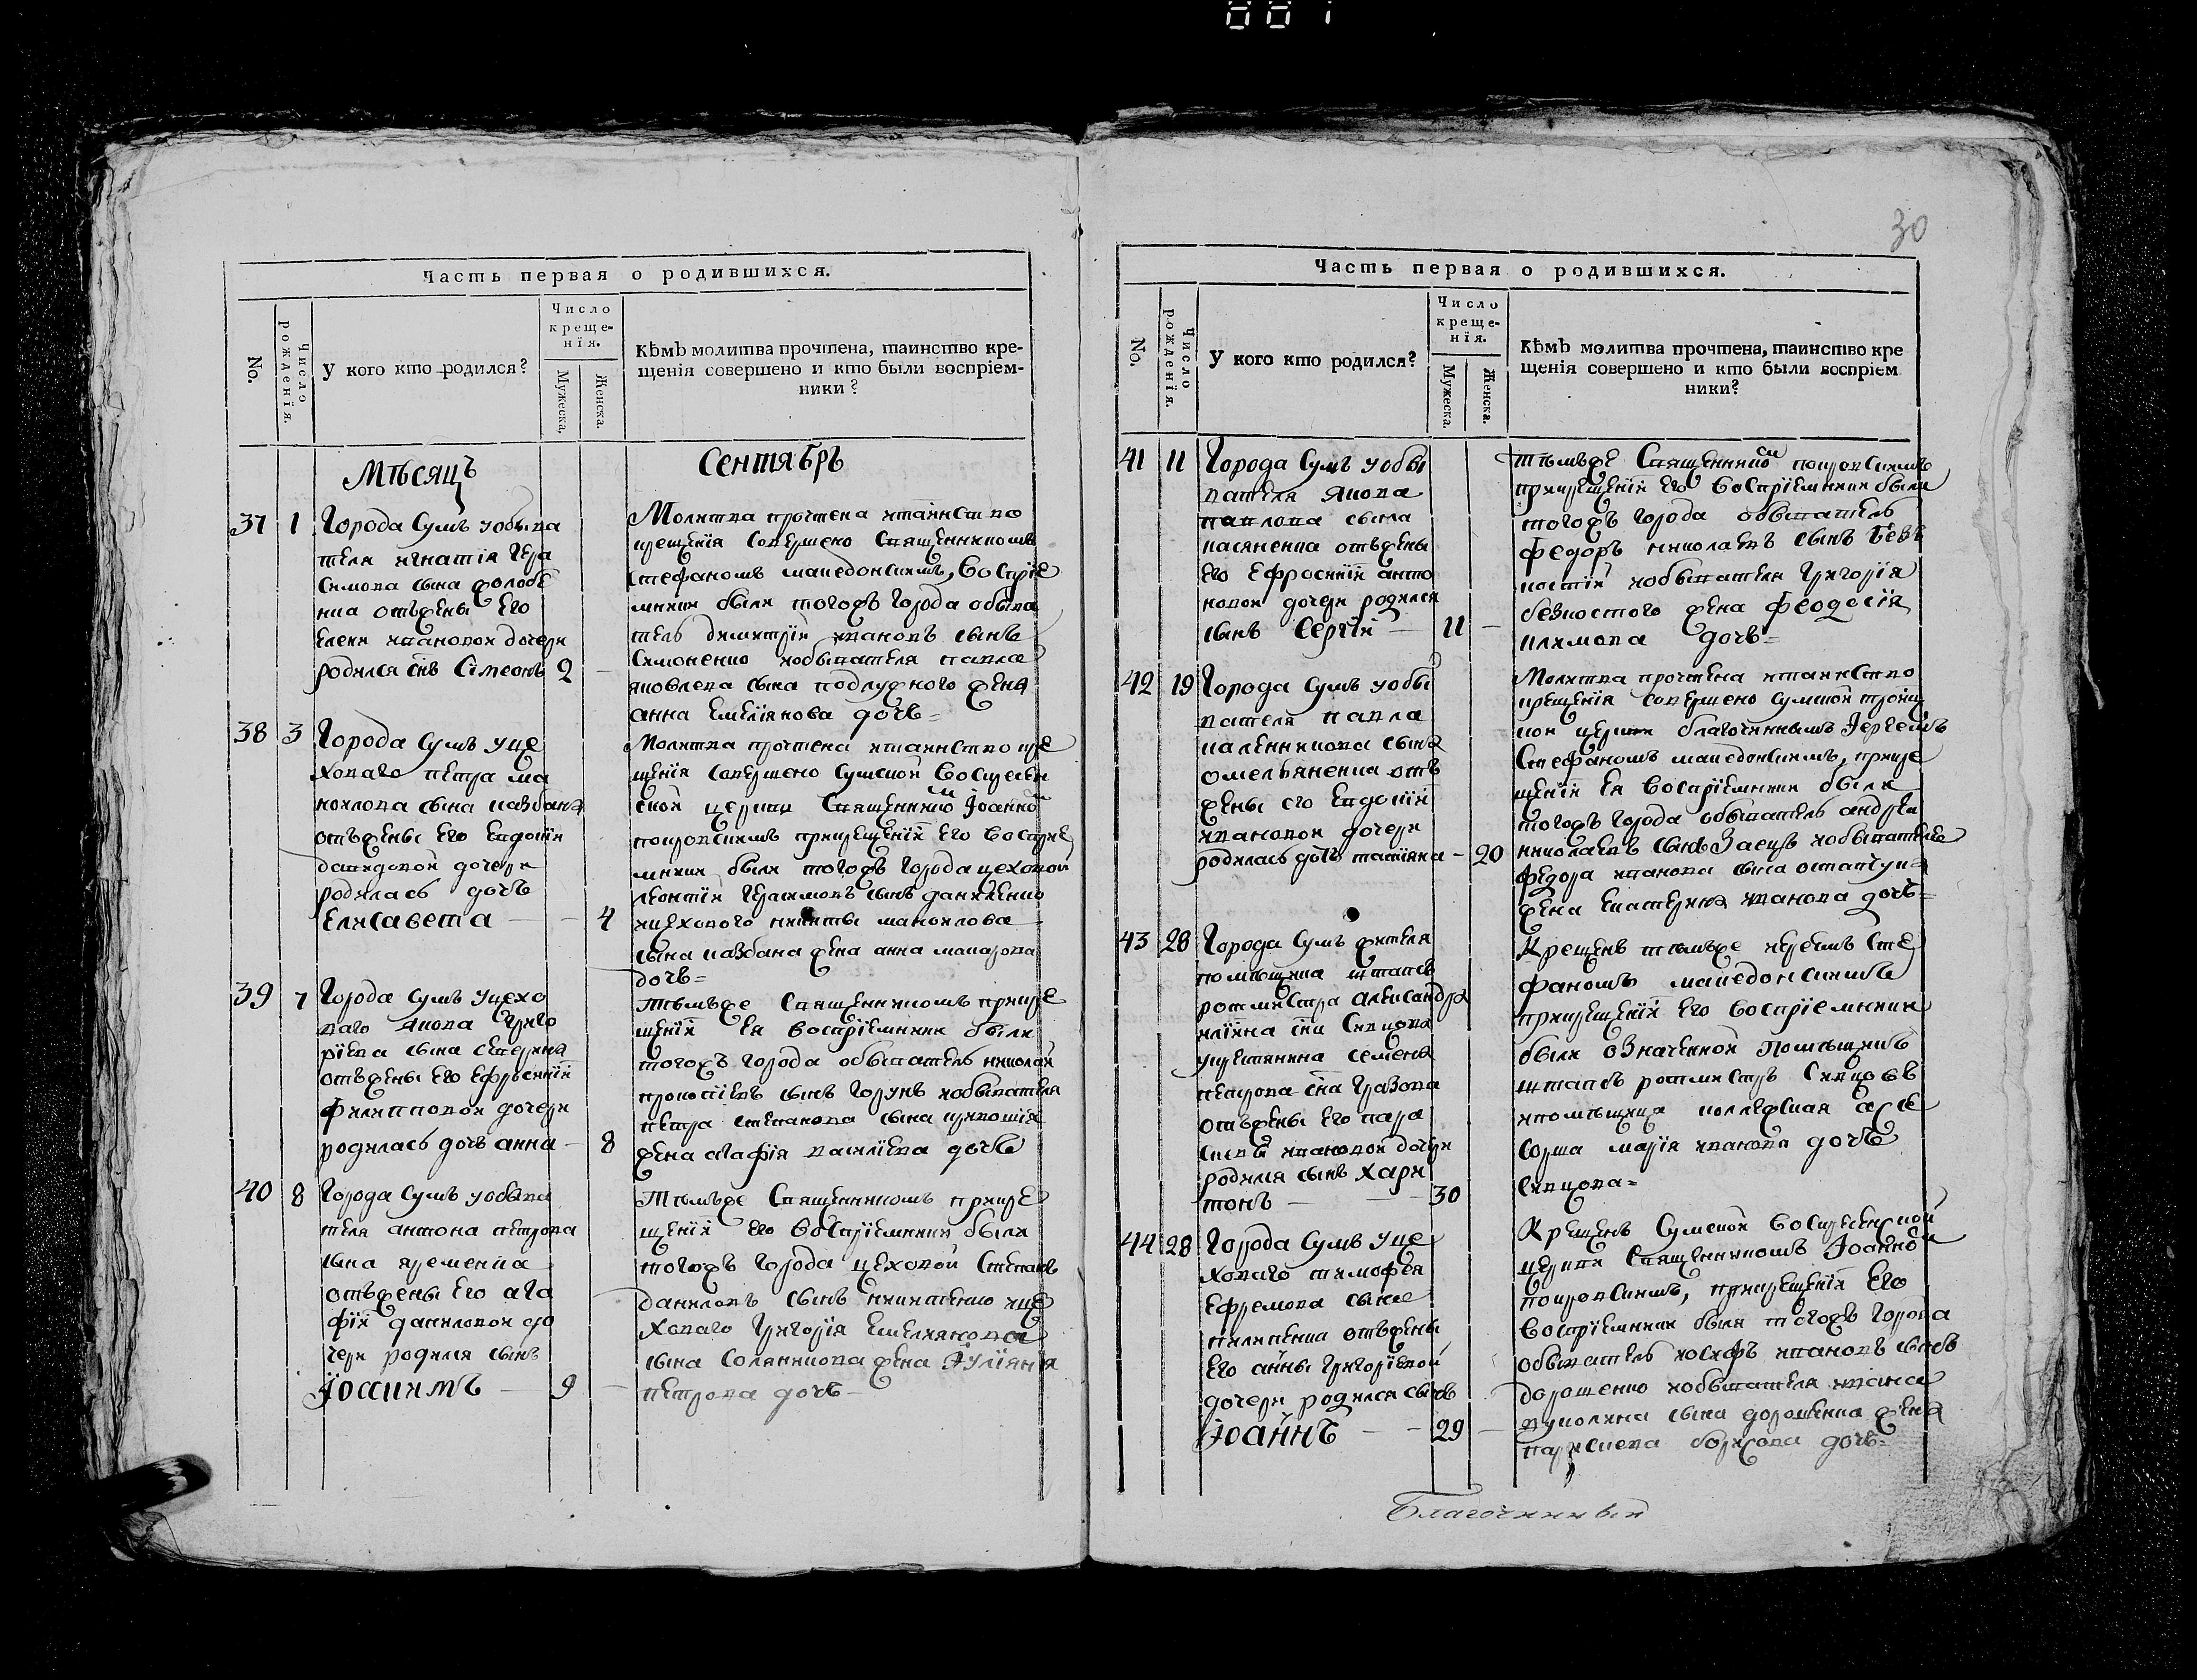 001
30
Часть первая о родившихся.
No.
Число рожденїя.
У кого кто родился?
Число креще-нїя.
Мужеска.
Женска.
Кѣмъ молитва прочтена, таинство кре-
щенїя совершено и кто были воспрїем-
ники?
Мѣсяцъ
Сентябрь
37 1
Города Сумъ уобыва
теля игнатїя Гера
симова сына
отъжены Его
Елены ивановой дочери
родился снъ Сѵмеонъ 2
Молитва прочтена итаинство
крещенїя совершено Священникомъ
Стефаномъ македонскимъ, Воспрїе
мники были тогожъ Города обыва
тель димитрїй ивановъ сынъ
Симоненко иобывателя павла
яковлева сына подлужного жена
анна Емелїянова дочь=
38 3
Города Сумъ уце
ховаго петра ма
ноилова сына казбана
отъжены Его Евдокїи
давидовой дочери
родилась дочь
Елисавета 4
Молитва прочтена итаинство кре
щенїя совершено Сумской Воскресен
ской церкви Священнико Іоанно
покровскимъ прикрещенїи Его Воспрїе
мники были тогожъ Города цеховой
леонтїй Герасимовъ сынъ даниленко
ицехового никиты маноилова
сына казбана жена анна макарова
дочь=
39 7
Города Сумъ уцехо
ваго якова Григо
рїева сына
отъжены Его Ефросинїи
филипповой дочери
родилась дочь анна 8
Тѣмъже Священникомъ прикре
щенїи Ея воспрїемники были
тогожъ Города обыватель николай
прокопїевъ сынъ Горунъ иобывателя
петра степанова сына
жена агафїя василїева дочь
40 8
Города Сумъ уобыва
теля антона петрова
сына яременка
отъжены Его ага
фїи даниловой до
чери родился сынъ
Іоакимъ 9
Тѣмъже Священникомъ прикре
щенїи Его Воспрїемники были
тогожъ Города цеховой Степанъ
даниловъ сынъ никитенко ице
ховаго Григорїя Емелїянова
сына Солянникова жена Іулїянїя
петрова дочь
Часть первая о родившихся.
No.
Число рожденїя.
У кого кто родился?
Число креще-нїя.
Мужеска.
Женска.
Кѣмъ молитва прочтена, таинство кре
щенїя совершено и кто были воспрїем
ники?
41 11
Города Сумъ уобы
вателя якова
павлова сына
касяненка отъжены
Его Ефросинїи анто
новой дочери родился
сынъ Сергїй 11
тѣмъже Священнико покровскимъ
прикрещенїи Его Воспрїемники были
тогожъ Города обыватель
федоръ николаевъ сынъ
иобывателя Григорїя
жена феодосїя
климова дочь=
42 19
Города Сумъ уобы
вателя павла
калинникова сына
омельяненка отъ
жены его Евдокїи
ивановой дочери
родилась дочь татїяна 20
Молитва прочтена итаинство
крещенїя совершено сумской троиц
кой церкви благочиннымъ Іереемъ
Стефаномъ македонскимъ, прикре
щенїи Ея Воспрїемники были
тогожъ Города обыватель андрей
николаевъ сынъ Заецъ иобывателя
федора иванова сына
жена Екатерина иванова дочь=
43 28
Города Сумъ жителя
помѣщика штапсъ
ротмистра Александра
илїина сна Савцова
укрестянина семена
петрова сна Гразова
отъжены Его пара
скевы ивановой дочери
родился сынъ Хари
тонъ 30
Крещенъ тѣмъже иереемъ Сте
фаномъ македонскимъ
прикрещенїи Его Воспрїемники
были означенной помѣщикъ
штапсъ ротмистръ
ипомѣщица коллежская асе
сорша марїя иванова дочь
44 28
Города Сумъ уце
ховаго тимофея
Ефремова сына
пилипенка отъжены
Его анны Григорїевой
дочери родился сынъ
Іоаннъ 29
Крещенъ Сумской Воскресенской
церкви Священникомъ Іоанно
покровскимъ, прикрещенїи Его
Воспрїемники были тогожъ Города
обыватель иосифъ ивановъ сынъ
дорошенко иобывателя ивана
сына дорошенка жена
параскева борисова дочь=
Благочинный